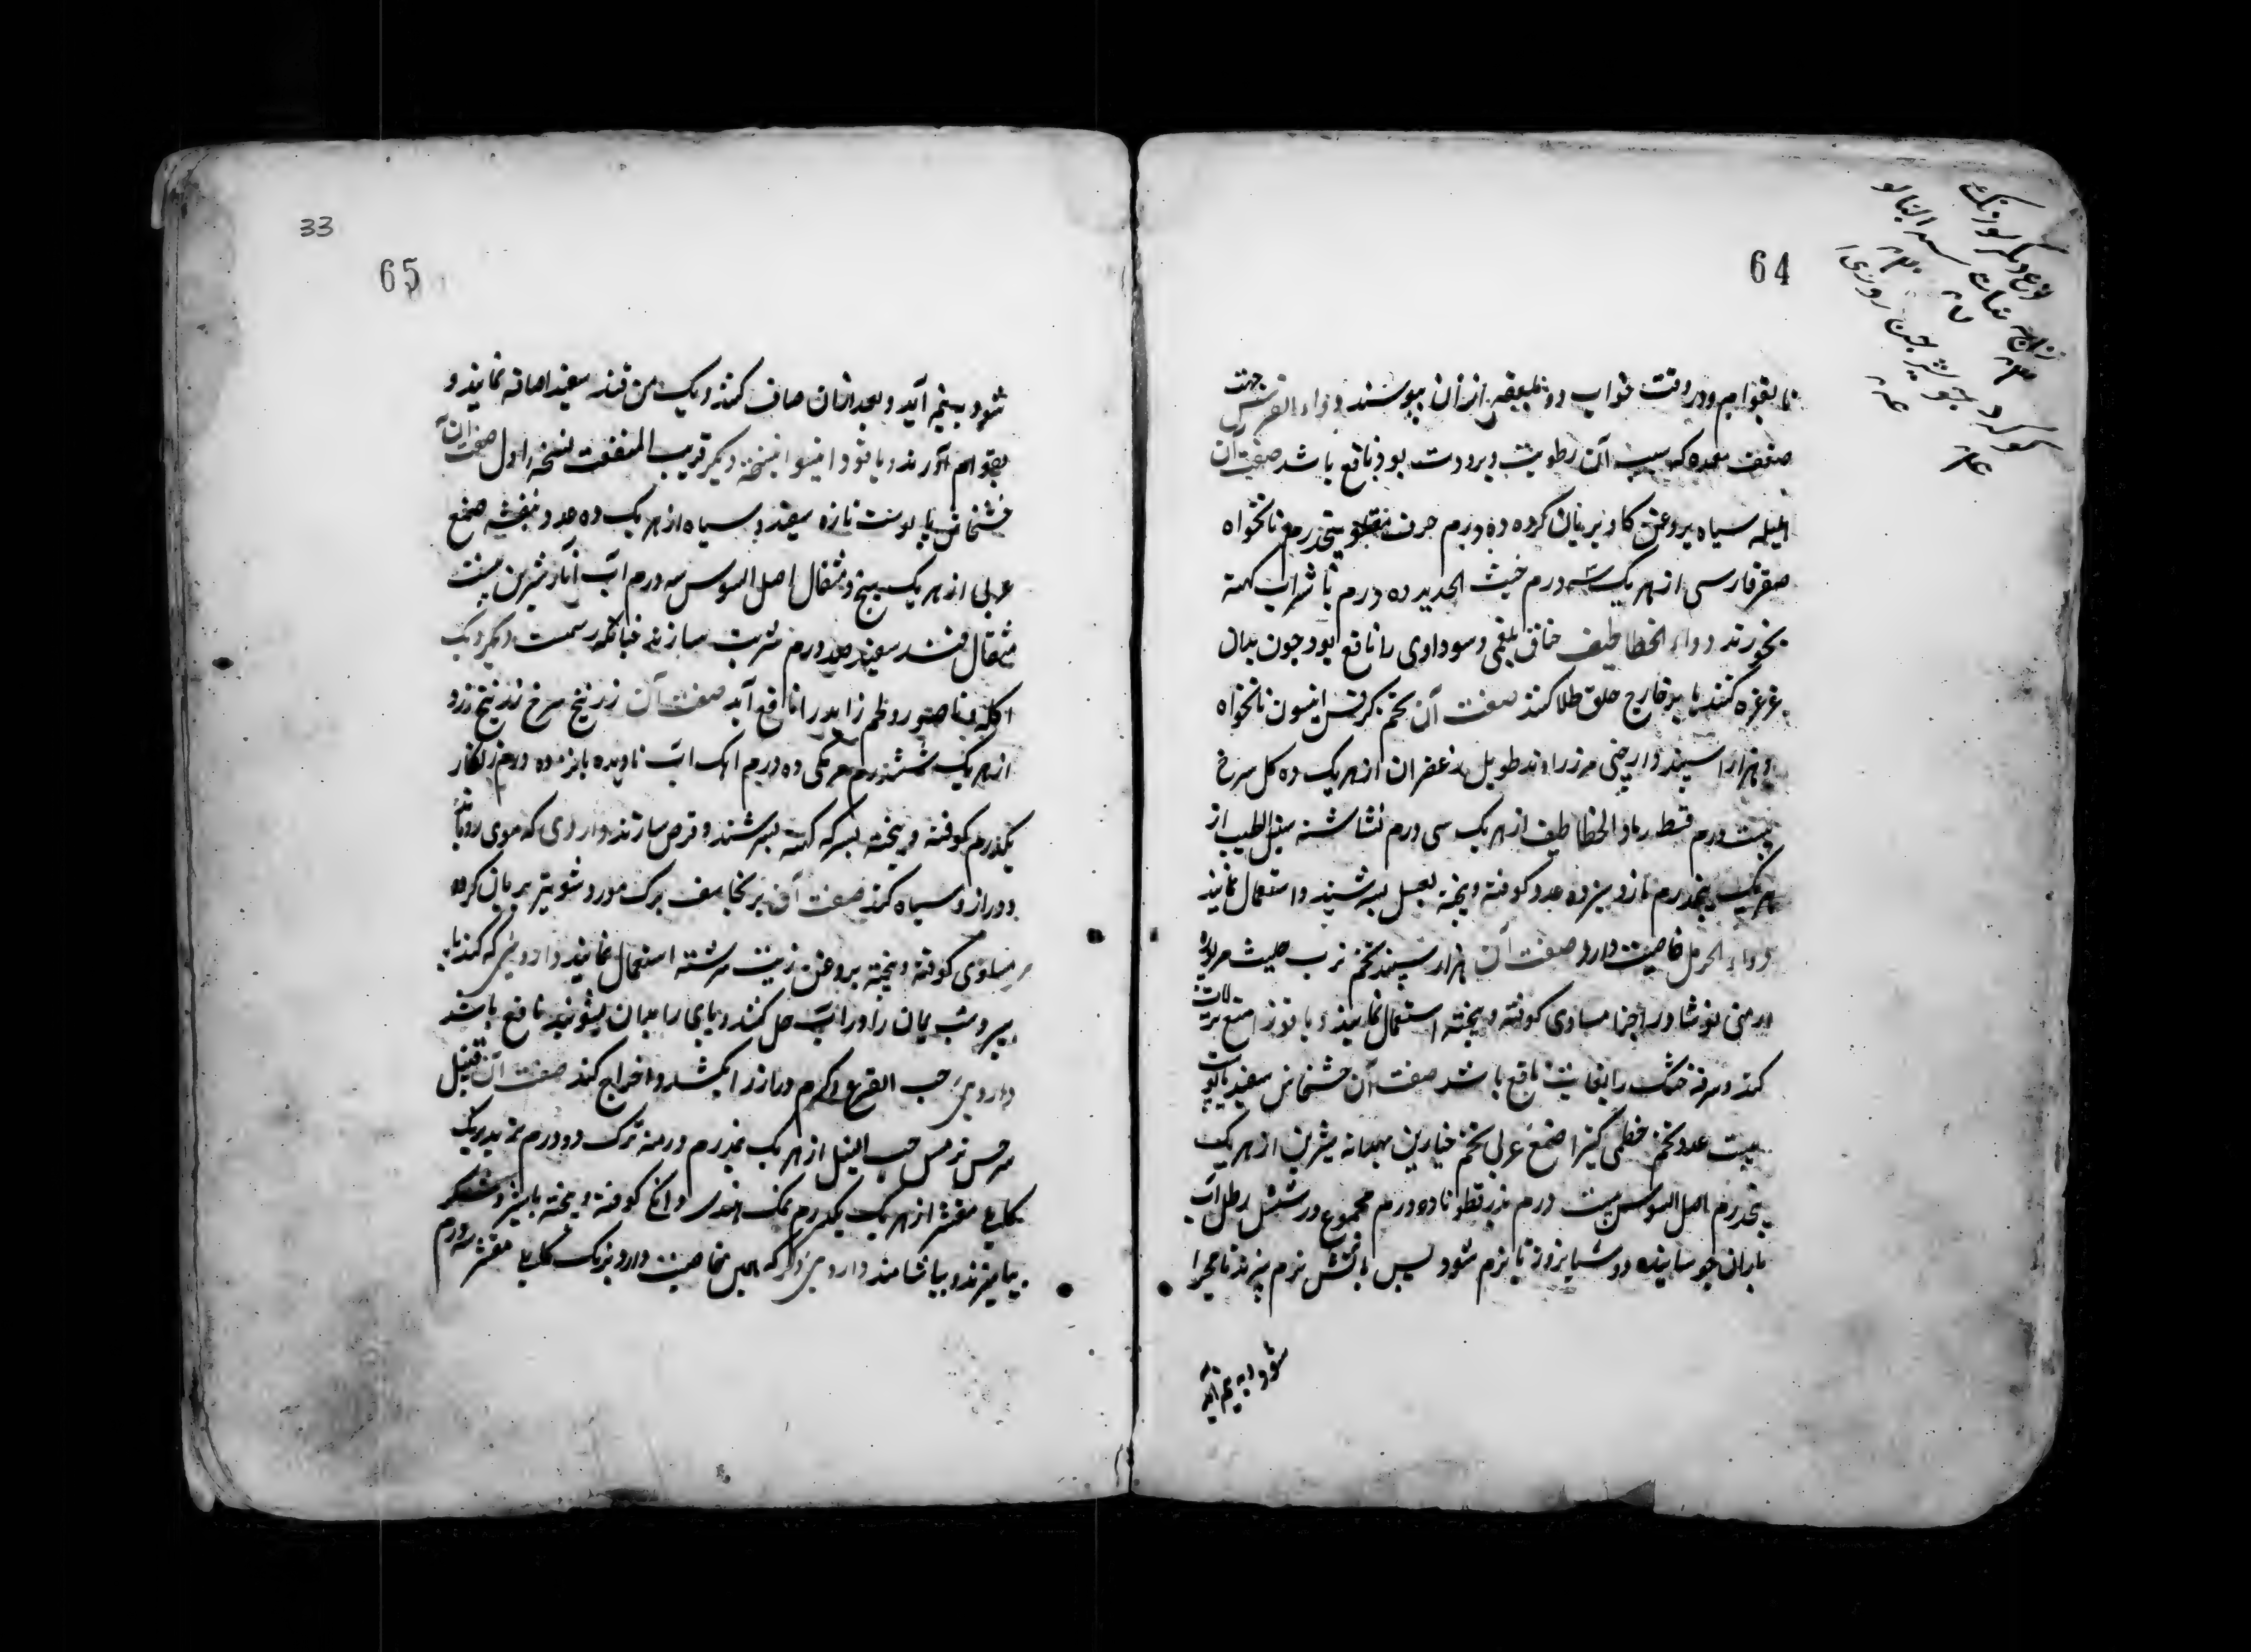 64
تا بقوام و در وقت خواب دو ملعقه ازان بنوشند دواء القرنفس جهت
ضعف معده که سبب آن رطوبت و برودت بود نافع باشد صفت آن
هلیله سیاه بروغن کاو بریان کرده ده درم حرف پنجدرم نانخواه
صعتر فارسی از هر یک سه درم خبث الحدید ده درم با شراب کهنه
بخورند دواء الخطاطیف خناق بلغمی و سوداوی را نافع بود چون بدان
غرغره کنند یا بر خارج حلق طلا کنند صفت آن تخم کرفس انیسون نانخواه
هزار اسپند دارچینی مر زراوند طویل زعفران از هر یک ده کل سرخ
بیست درم قسط رماد الخطاطیف از هر یک سی درم نشاسته سنبل الطیب از
هر یک پنجدرم مازو سیزده عدد کوفته و بیخته بعسل بسرشند و استعمال نمایند
دواء الحرمل خاصیت دارد صفت آن هزار سپند تخم ترب حلیت
ارمنی نوشادر اجزا مساوی کوفته و بیخته استعمال نمایند دیاقوزا منع نزلات
کند و سرفه خشک را بغایت نافع باشد صفت آن خشخاش سفید باپوست
بیست عدد تخم خطمی کتیرا صمغ عربی تخم خیارین بهدانه شیرین از هر یک
پنجدرم اصل السوس بیست درم بذرقطونا ده درم مجموع در شش رطل آب
باران خوسانیده دو شبانروز تا نرم شود پس باتش نرم پزند تا مهرا
شود و به نیم آید
نوع دیکر
65
33
شود به نیم آید و بعد ازان صاف کنند و یک من قند سفید اضافه نمایند و
بقوام آورند دیاقودا نسخه دیکر قریب المنفعت نسخه اول صفت آن
خشخاش با پوست تازه سفید و سیاه از هر یک ده عدد بنفشه صمغ
عربی از هر یک پنج مثقال اصل السوس سه درم آب انار شیرین بیست
مثقال قند سفید صد درم شربت سازند چنانکه رسمست دیکر دیک
اکله و ناصور و لحم زاید را نافع آید صفت آن زرنیخ سرخ زرنیخ زرد
از هر یک ششدرم مر مکی ده درم اهک آب نادیده پانزده درم زنکار
یکدرم کوفته و بیخته بسرکه کهنه بسرشند و قرص سازند داروی که موی رویاند
و دراز و سیاه کند صفت آن برنجاسف برک مورد شونیز بریان کرده
مساوی کوفته و بیخته بروغن زیت سرشته استعمال نمایند داروئی که کند پای
ببرد شب یمان را در آب حل کنند و پای را بدان بشویند نافع باشد
داروئی حب القرع و کرم دراز را بکشد و اخراج کند صفت آن قنبیل
سرخس ترمس حب النیل از هر یک پنجدرم درمنه ترک دو درم تربد برنک
کابلی مقشر از هر یک یکدرم نمک هندی دانکی کوفته و بیخته باشیر و شکر
بیامیزند و بیاشامند داروئی دیکر که همین خاصیت دارد برنک کابلی مقشر سه درم